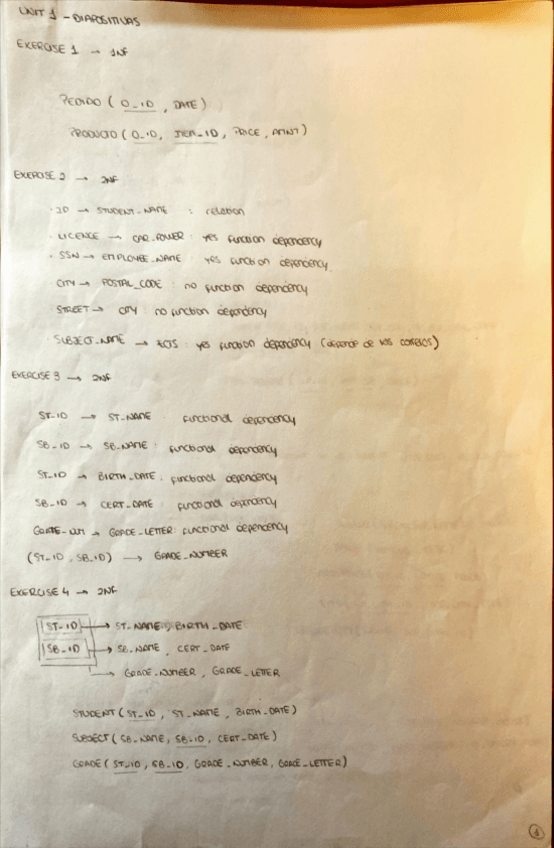 UNIT 1 - DIAPOSITIVAS
EXERCISE 1 → 1NF
PEDIDO ( O_ID , DATE )
PRODUCTO ( O_ID, ITEM_ID, PRICE, AMNT )
EXERCISE 2 → 2NF
· ID → STUDENT_NAME : relation
· LICENCE → CAR_POWER : yes function dependency
· SSN → EMPLOYEE_NAME : yes function dependency
CITY → POSTAL_CODE : no function dependency
STREET → CITY : no function dependency
· SUBJECT_NAME → ECTS : yes function dependency (depende de los
EXERCISE 3 → 2NF
ST_ID → ST_NAME : functional dependency
SB_ID → SB_NAME : functional dependency
ST_ID → BIRTH_DATE : functional dependency
SB_ID → CERT_DATE : functional dependency
→ GRADE_LETTER : functional dependency
(ST_ID, SB_ID) → GRADE_NUMBER
EXERCISE 4 → 2NF
ST_ID → ST_NAME, BIRTH_DATE
SB_ID → SB_NAME, CERT_DATE
→ GRADE_NUMBER, GRADE_LETTER
STUDENT ( ST_ID, ST_NAME, BIRTH_DATE )
SUBJECT ( SB_NAME, SB_ID, CERT_DATE )
GRADE ( ST_ID, SB_ID, GRADE_NUMBER, GRADE_LETTER )
1